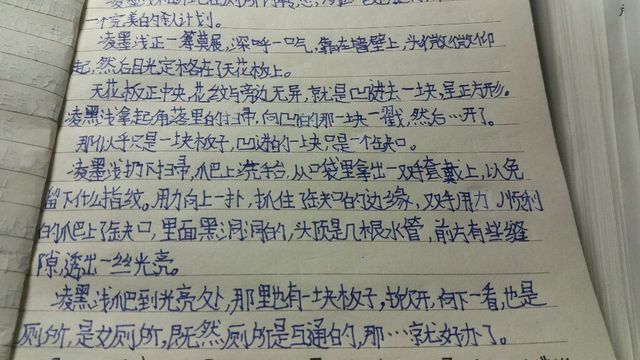 一个完美的杀人计划。
凌墨浅正一筹莫展,深呼一口气,靠在墙壁上,头微微仰
起,然后目光定格在了天花板上。
天花板正中央,花纹与旁边无异,就是凹进去一块,呈正方形。
凌墨浅拿起角落里的扫帚,向凹的那一块一戳,然后…开了。
那似乎只是一块板子,凹进的一块只是个缺口。
凌墨浅扔下扫帚,爬上洗手台,从口袋里拿出一双手套戴上,以免
留下什么指纹。用力向上一扑,抓住了缺口的边缘,双手用力,顺利
的爬上了缺口,里面黑洞洞的,头顶是几根水管,前方有些缝
隙,透出一丝光亮。
凌墨浅爬到光亮处,那里也有一块板子,挖开,向下一看,也是
厕所,是女厕所,既然厕所是互通的,那…就好办了。